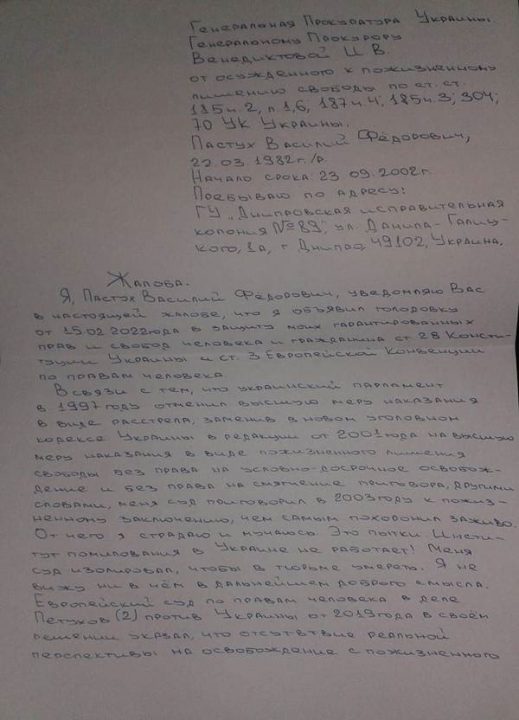 Генеральная Прокуратура Украины
Генеральному Прокурору
Венедиктовой И. В.
от осужденного к пожизненному
лишению свободы по ст. ст.
115 ч. 2, п. 1,6; 187 ч. 4; 185 ч. 3; 304;
70 УК Украины.
Пастух Василий Фёдорович,
22.03.1982 г./р.
Начало срока: 23.09.2002 г.
Пребываю по адресу:
ГУ „Днипровская исправительная
колония №89"; ул. Данила-Галиц-
кого, 1а, г. Днипро, 49102, Украина.
Жалоба.
Я, Пастух Василий Фёдорович, уведомляю Вас
в настоящей жалобе, что я объявил голодовку
от 15.02.2022 года в защиту моих гарантированных
прав и свобод человека и гражданина ст. 28 Консти-
туции Украины и ст. 3 Европейской Конвенции
по правам человека.
В связи с тем, что украинский парламент
в 1997 году отменил высшую меру наказания
в виде расстрела, заменив в новом уголовном
кодексе Украины в редакции от 2001 года на высшую
меру наказания в виде пожизненного лишения
свободы без права на условно-досрочное освобож-
дение и без права на смягчение приговора, другими
словами, меня суд приговорил в 2003 году к пожиз-
ненному заключению, чем самым похоронил заживо.
От чего я страдаю и мучаюсь. Это пытки. Инсти-
тут помилования в Украине не работает! Меня
суд изолировал, чтобы в тюрьме умереть. Я не
вижу ни в чём в дальнейшем доброго смысла.
Европейский суд по правам человека в деле
Петухов (2) против Украины от 2019 года в своём
решении указал, что отсутствие реальной
перспективы на освобождение с пожизненного